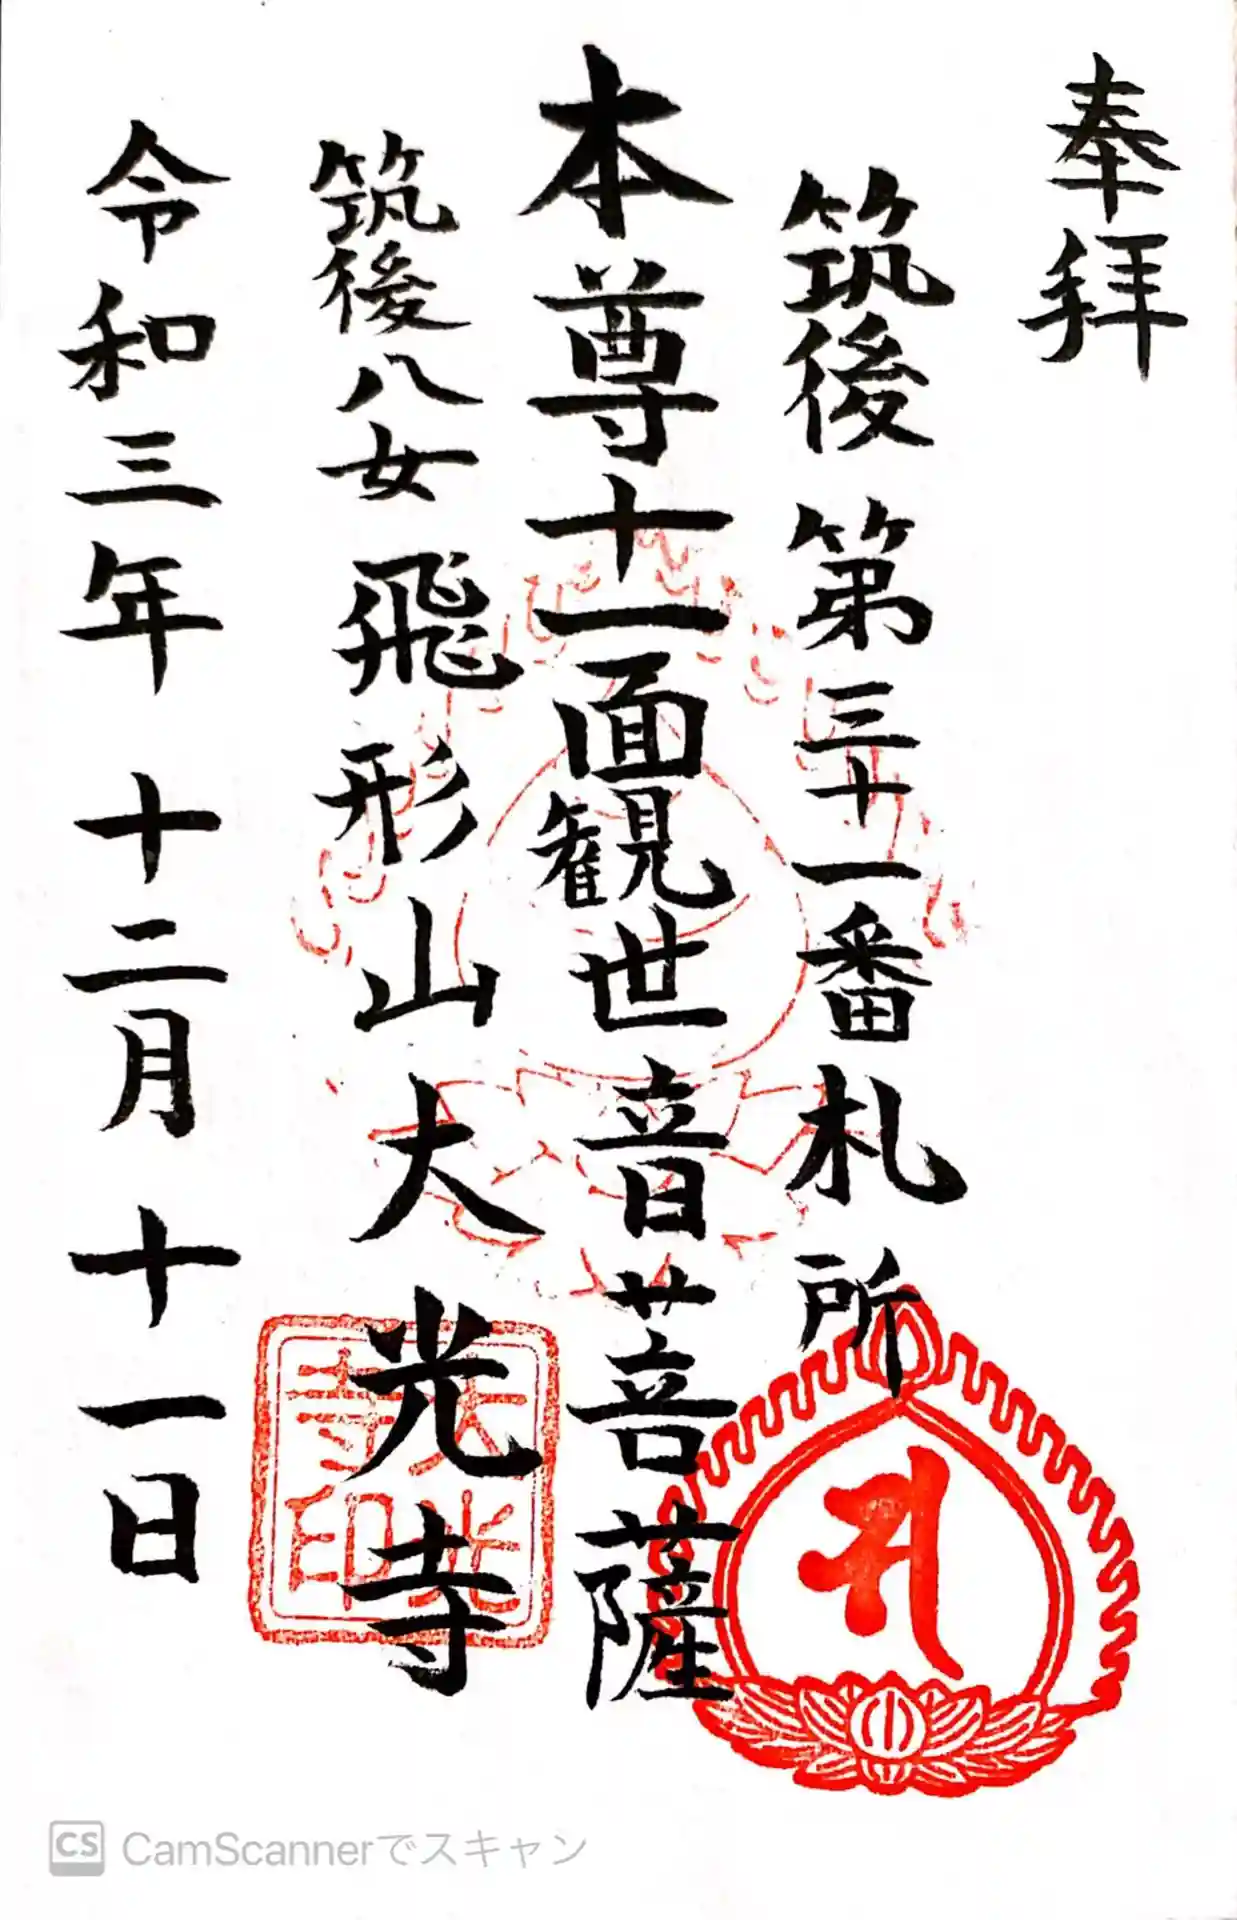 奉拝
筑後 第三十一番札所
本尊十一面観世音菩薩
筑後八女 飛形山大光寺
令和三年 十二月十一日
大光寺印
CamScannerでスキャン